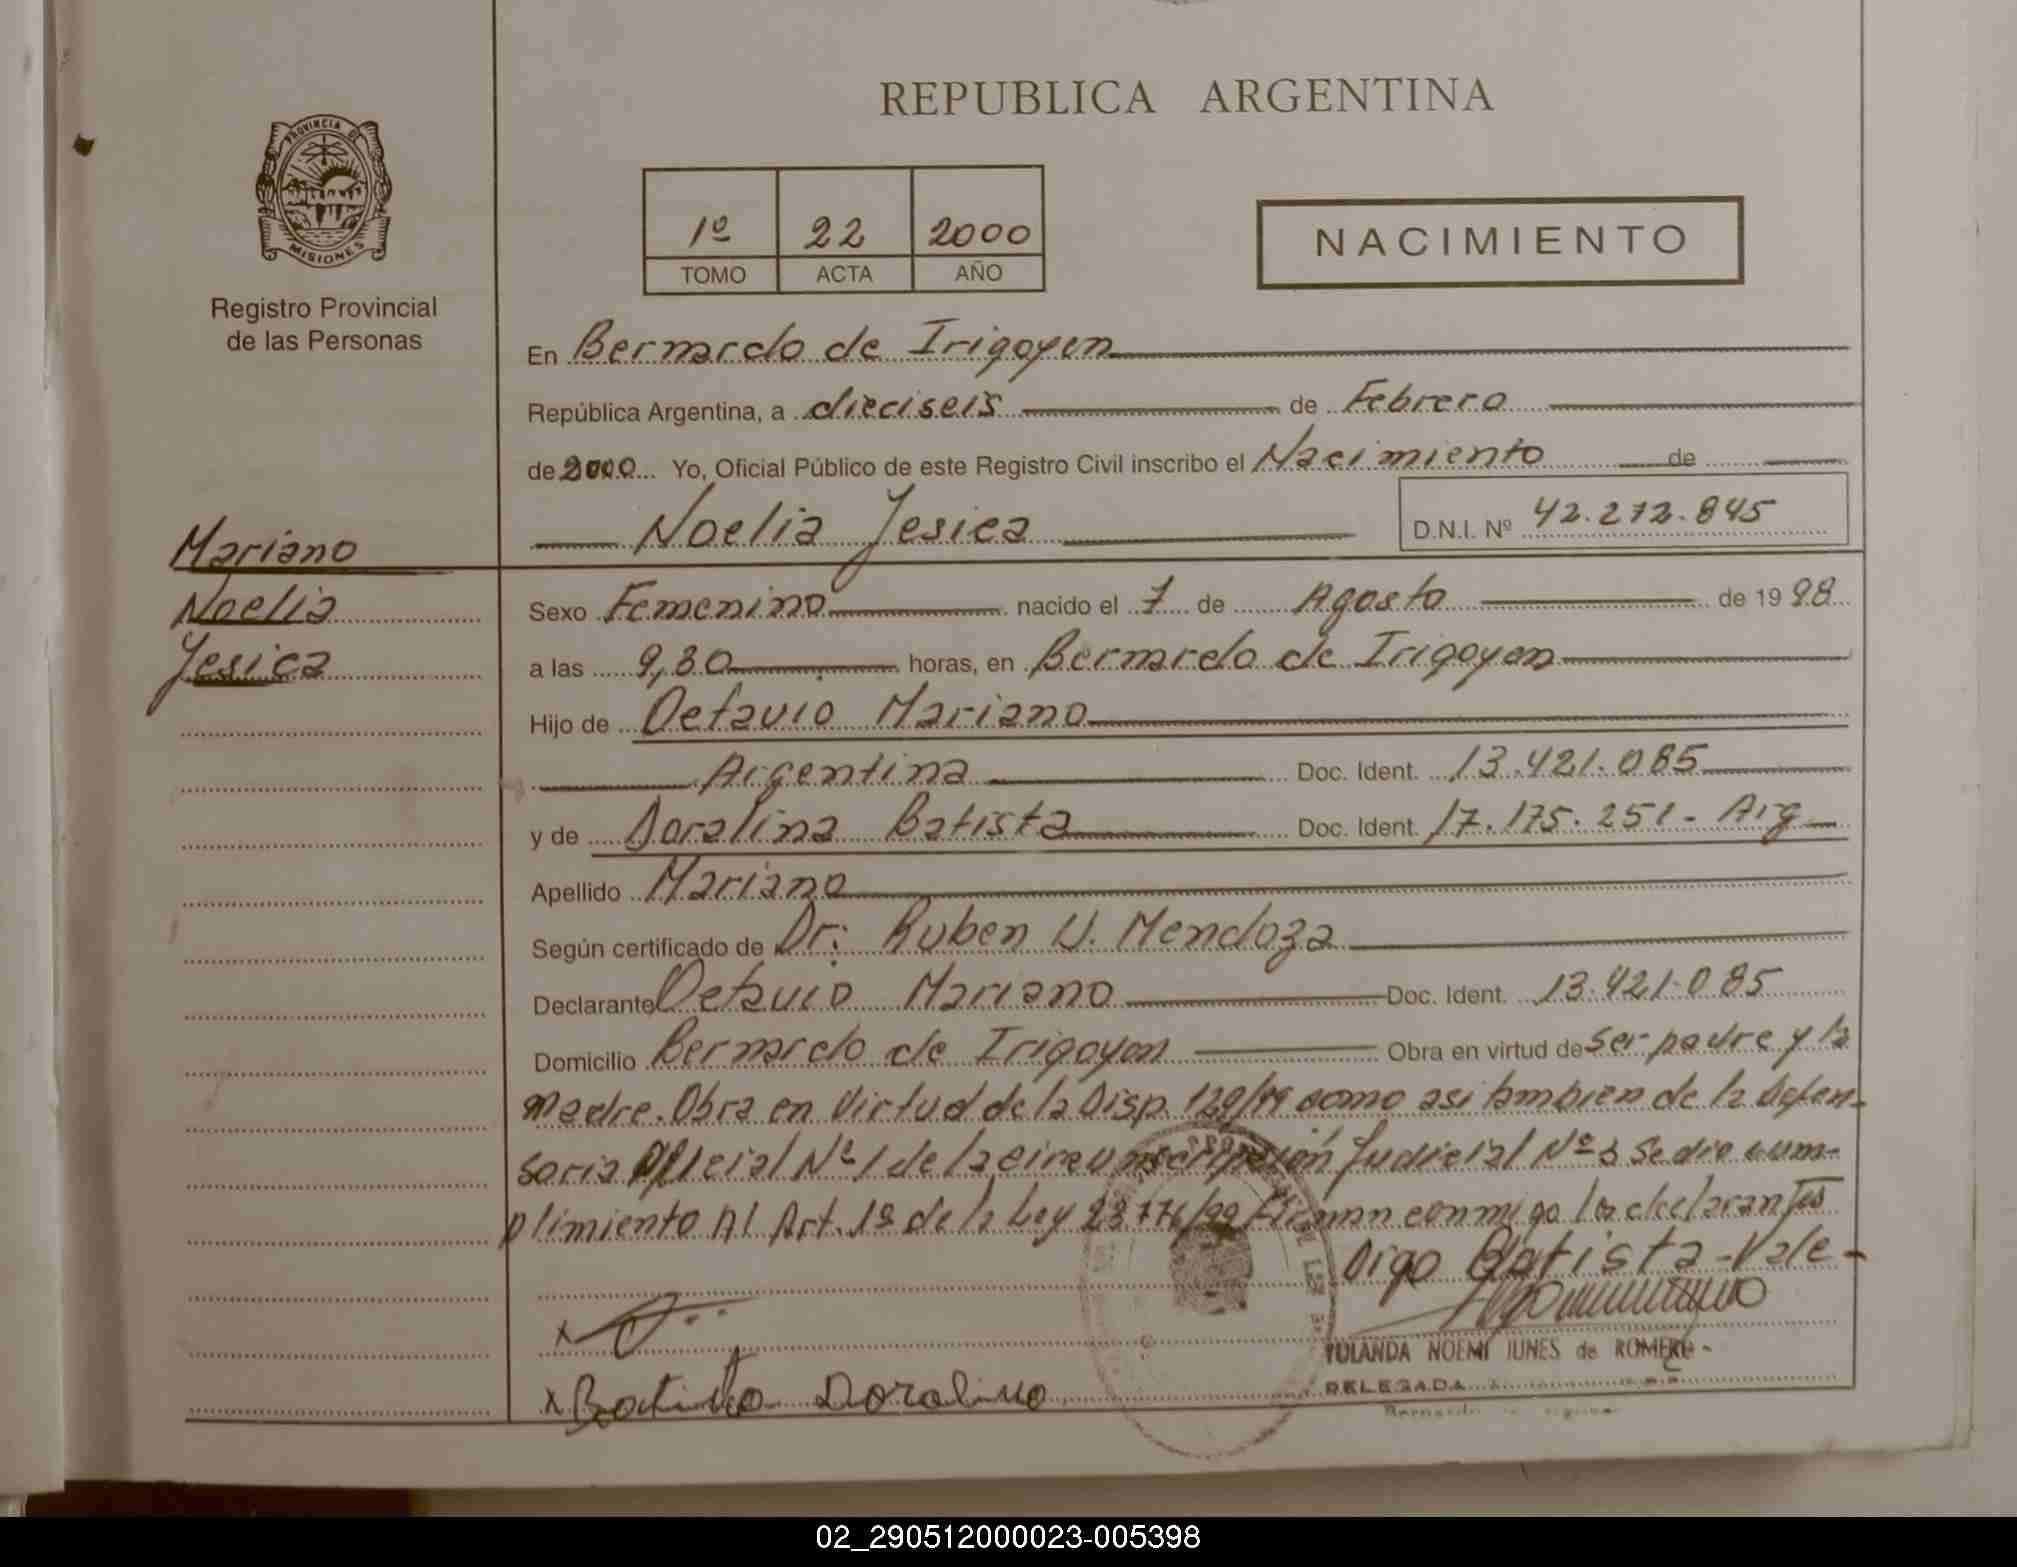 REPUBLICA ARGENTINA
PROVINCIA DE
MISIONES
Registro Provincial
de las Personas
1º 22 2000
TOMO ACTA AÑO
NACIMIENTO
En Bernardo de Irigoyen
República Argentina, a dieciseis de Febrero
de 2000 Yo, Oficial Público de este Registro Civil inscribo el Nacimiento de
Noelia Yesica D.N.I. Nº 42.272.845
Mariano
Noelia
Yesica
Sexo Femenino nacido el 7 de Agosto de 1998
a las 9,30 horas, en Bernardo de Irigoyen
Hijo de Octavio Mariano
Argentina Doc. Ident. 13.421.085
y de Doralina Batista Doc. Ident. 17.175.251 - Arg
Apellido Mariano
Según certificado de Dr: Ruben U. Mendoza
Declarante Octavio Mariano Doc. Ident. 13.421.085
Domicilio Bernardo de Irigoyen Obra en virtud de ser padre y la
madre. Obra en Virtud de la Disp. 129/99 como asi tambien de la Defen-
soria Oficial Nº 1 de la circunscripción Judicial Nº 3 se dio cum-
plimiento Al Art. 1º de la Ley 23.776/99 Firman conmigo los declarantes
Digo Batista - Vale -
x
YOLANDA NOEMI IUNES de ROMERO
x Batista Doralina
DELEGADA
02_290512000023-005398